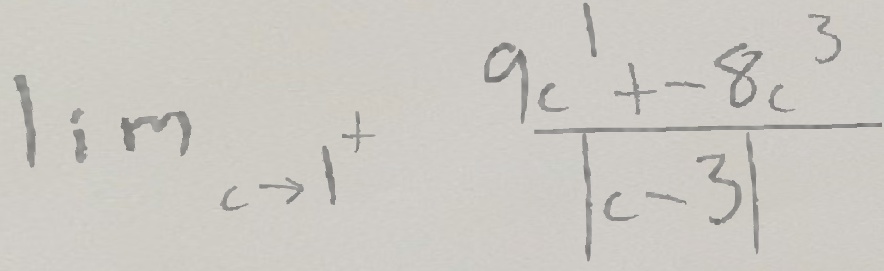 \lim_{c \to 1^+} \frac{9c^1 + -8c^3}{|c-3|}